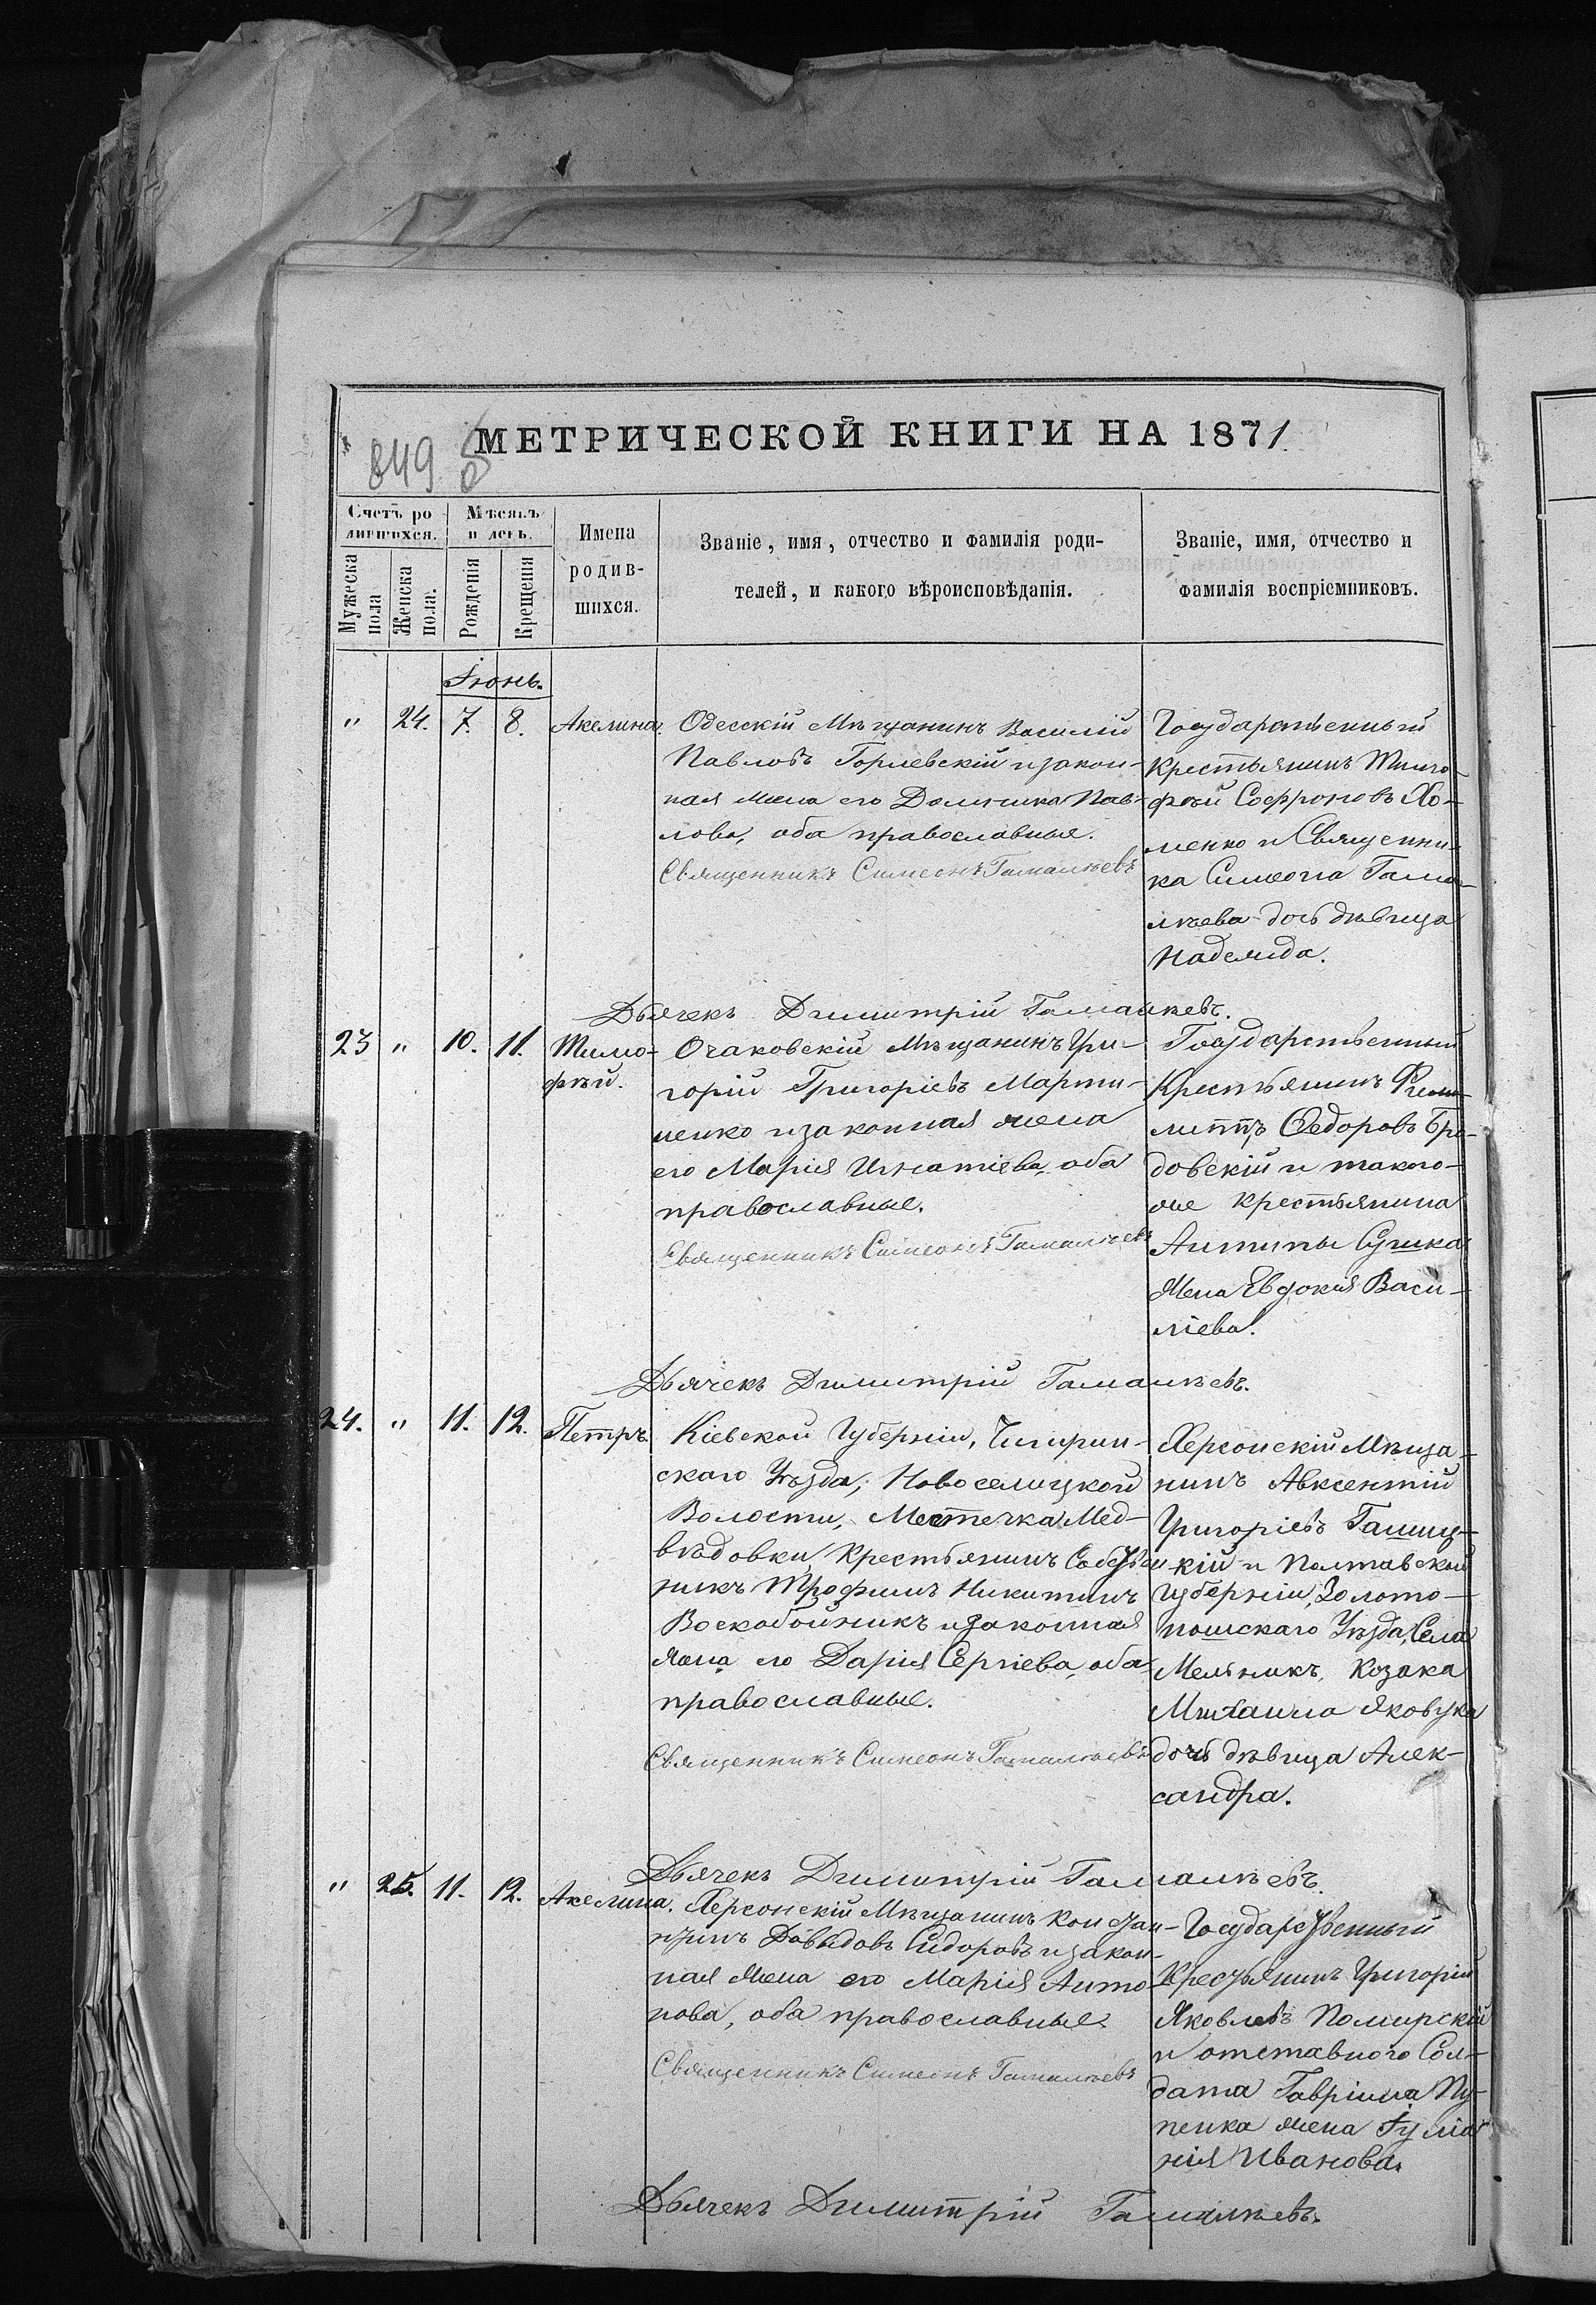 849
МЕТРИЧЕСКОЙ КНИГИ НА 1871.
Счетъ ро
дившихся.
Мѣсяцъ
и день.
Имена
родив-
шихся.
Званіе, имя, отчество и фамилія роди-
телей, и какого вѣроисповѣданія.
Званіе, имя, отчество и
фамилія воспріемниковъ.
Мужеска
пола
Женска
пола.
Рожденія
Крещенія
Іюнь.
" 24. 7. 8. Акелина.
Одесскій Мѣщанинъ Василій
Павловъ Горлевскій и закон-
ная жена его Домникія Пав-
лова, оба православные.
Священникъ Симеонъ Гамалѣевъ
Государственный
Крестьянинъ Тимо-
фѣй Софроновъ Хо-
менко и Священни-
ка Симеона Гама-
лѣева дочь дѣвица
Надежда.
Дьячекъ Димитрій Гамалѣевъ.
23 " 10. 11. Тимо-
фѣй.
Очаковскій Мѣщанинъ Гри-
горій Григоріевъ Марти-
ненко и законная жена
его Марія Игнатіева, оба
православные.
Священникъ Симеонъ Гамалѣевъ
Государственный
Крестьянинъ
Ѳедоровъ Бро-
довскій и таково-
же крестьянина
Антипы Сушка
жена Евдокія Васи-
ліева.
Дьячекъ Димитрій Гамалѣевъ.
24. " 11. 12. Петръ.
Кіевской Губерніи, Чигирин-
скаго Уѣзда, Новоселицкой
Волости, Местечка Мед-
вѣдовки, Крестьянинъ Собствен
никъ Трофимъ Никитинъ
Воскобойникъ и законная
жена его Дарія Сергіева, оба
православные.
Священникъ Симеонъ Гамалѣевъ
Херсонскій Мѣща-
нинъ Авксентій
Григоріевъ Гашиц-
кій и Полтавской
Губерніи, Золото-
ношскаго Уѣзда, Села
Мельникъ, Козака
Михаила Яковца
дочь дѣвица Алек-
сандра.
Дьячекъ Димитрій Гамалѣевъ.
" 25. 11. 12. Акелина.
Херсонскій Мѣщанинъ Констан-
тинъ Давыдовъ Сидоровъ и закон-
ная жена его Марія Анто-
нова, оба православные.
Священникъ Симеонъ Гамалѣевъ
Государственный
Крестьянинъ Григорій
Яковлевъ Помирскій
и отставного Сол-
дата Гавріила Пу-
пенка жена Іуліа
нія Иванова.
Дьячекъ Димитрій Гамалѣевъ.